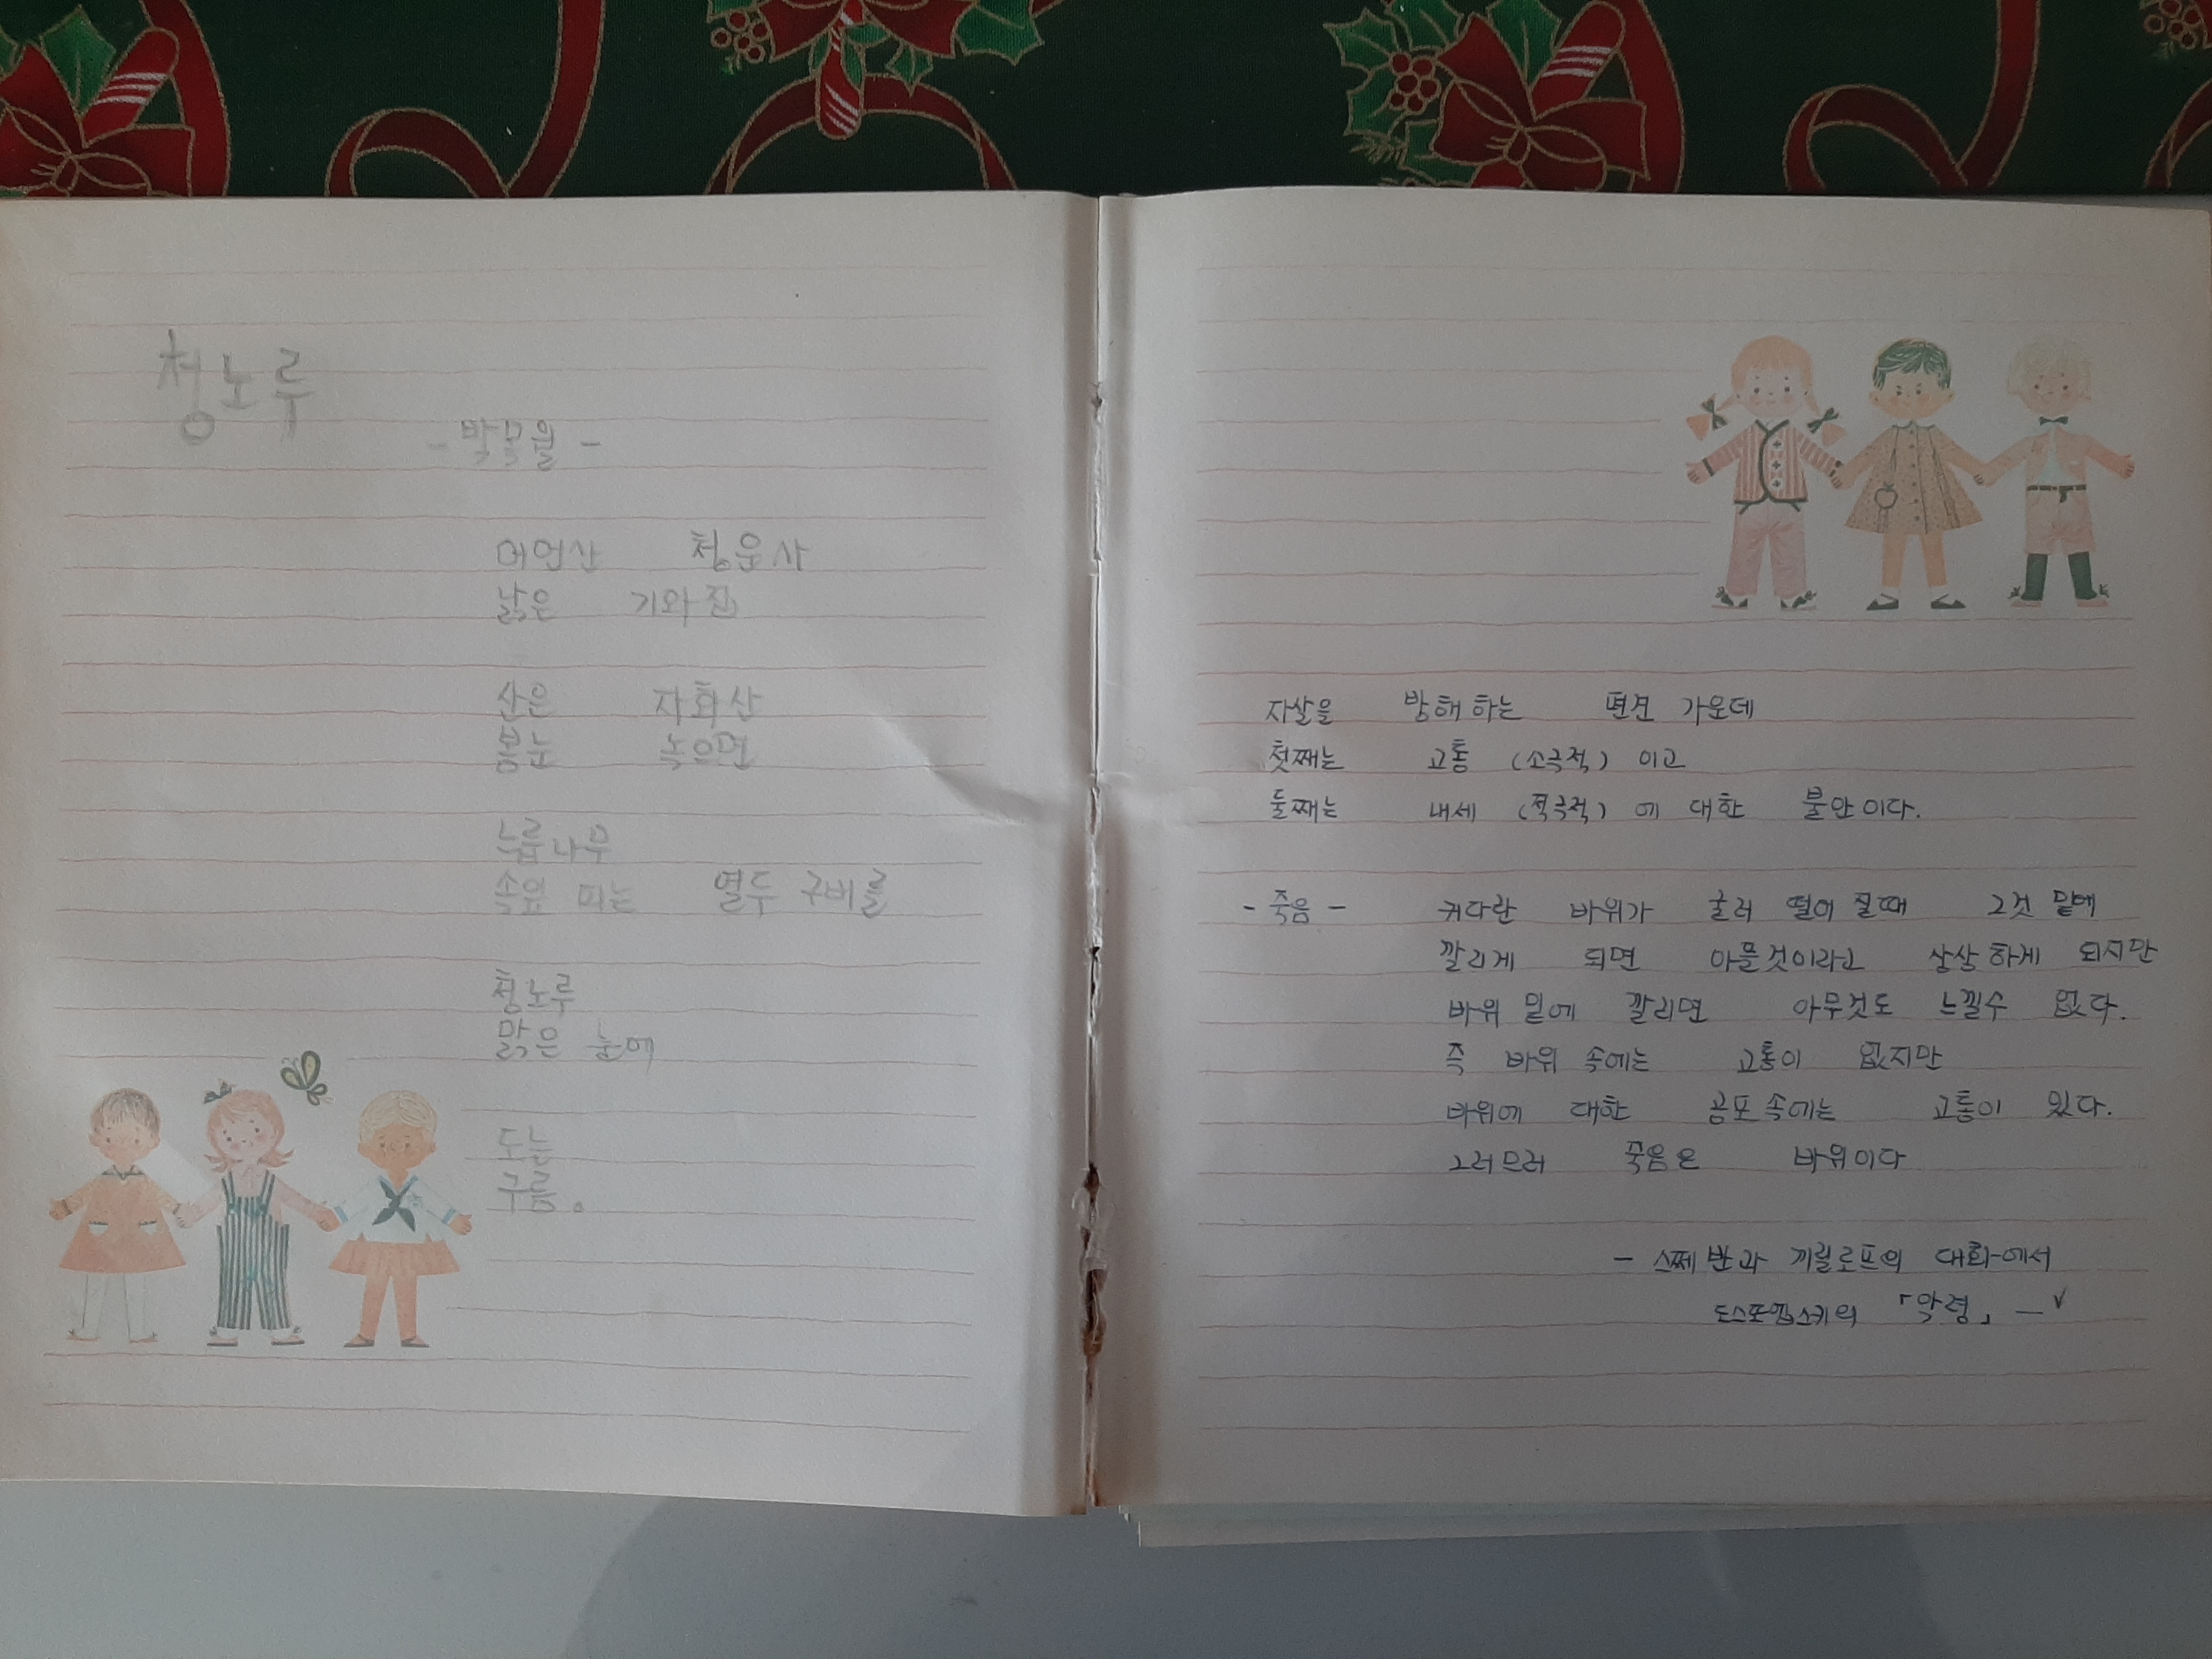 청노루
- 박목월 -
머언산 청운사
낡은 기와집
산은 자하산
봄눈 녹으면
느릅나무
속잎 피는 열두 구비를
청노루
맑은 눈에
도는
구름。
자살을 방해하는 편견 가운데
첫째는 고통 (소극적) 이고
둘째는 내세 (적극적) 에 대한 불안이다.
- 죽음 - 커다란 바위가 굴러 떨어 질때 그것 밑에
깔리게 되면 아플것이라고 상상하게 되지만
바위 밑에 깔리면 아무것도 느낄수 없다.
즉 바위 속에는 고통이 없지만
바위에 대한 공포속에는 고통이 있다.
그러므러 죽음은 바위이다
- 스쩨반과 끼릴로프의 대화에서
도스또옙스키의 「악령」 -